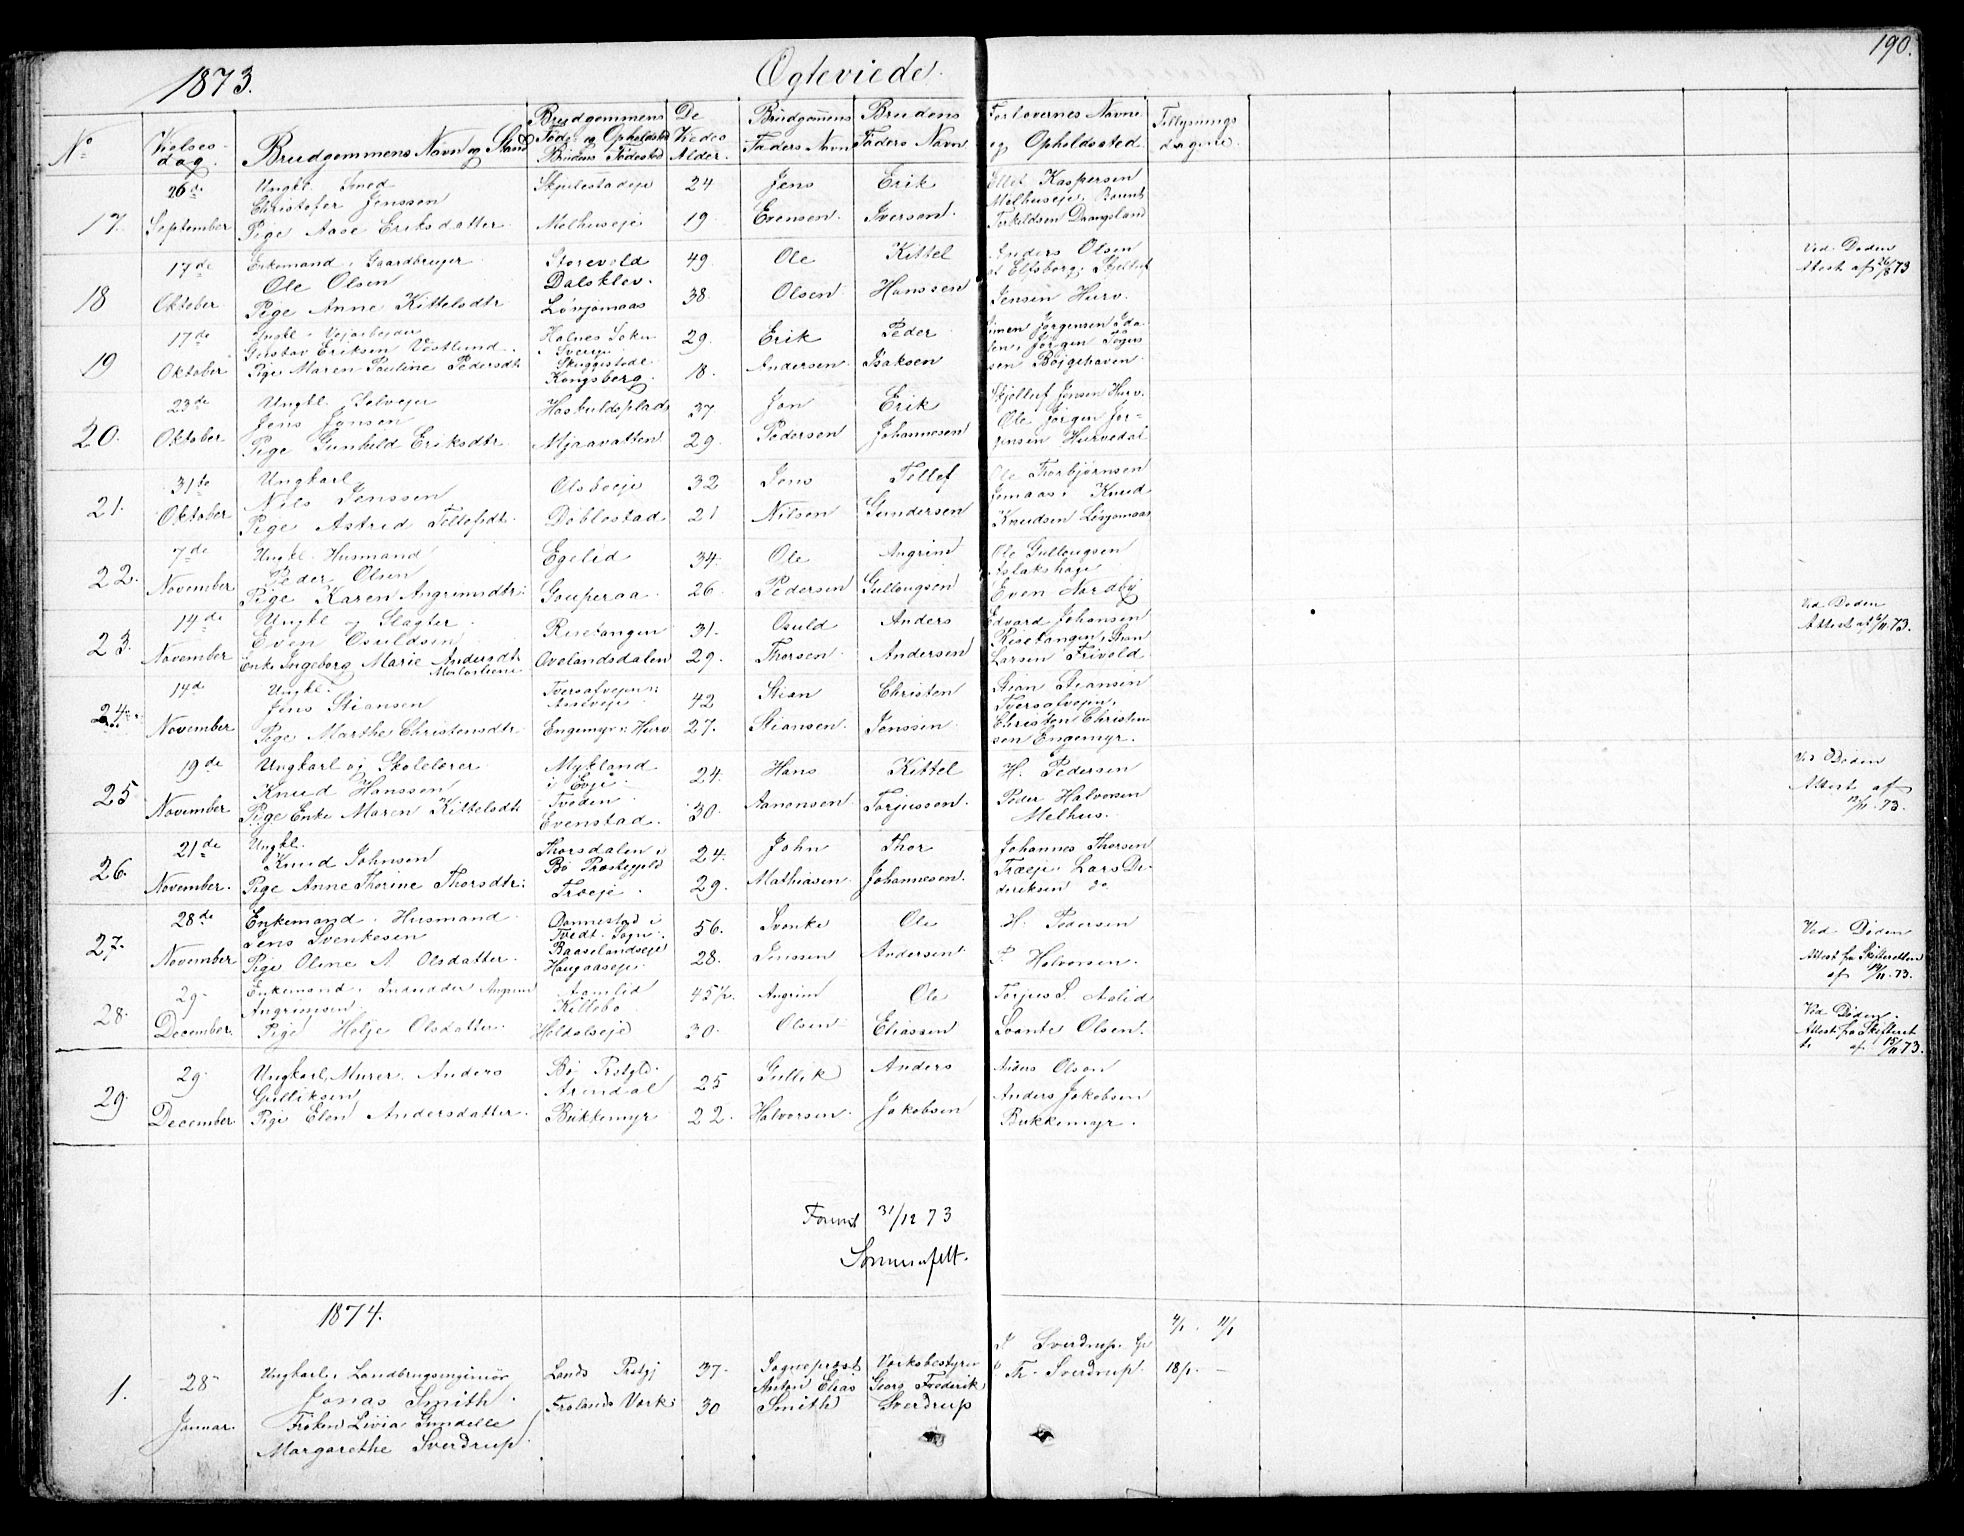 190.
1873. Egteviede.
No
Vielses-
dag.
Brudgommens Navn og Stand
Brudgommens
Føde- og Opholdsted
Brudens Fødested
De
Viedes
Alder.
Brudgomens
Faders Navn
Brudens
Faders Navn
Forlovernes Navne
og Opholdsted
Tillysnings
dagene.
17. 26de September
Ungkl. Smed
Christofer Jenssen
Pige Aase Eriksdatter
Skjulestadeje
Melhuseje
24
19.
Jens
Evensen.
Erik
Iversen.
Kaspersen
Melhuseje,
Torkildsen Daangsland
18 17de Oktober
Enkemand, Gaardbruger
Ole Olsen
Pige Anne Kittelsdtr
Storevold
Dalsklev.
Løvjomaas
49
38
Ole
Olsen
Kittel
Hanssen
Anders Olsen
Jensen Hurv.
Ved Døden
Attest af 26/8 73
19 17de Oktober
Ungkl. Vejarbejder
Gustav Eriksen Vestlund.
Pige Maren Pauline Pedersdtr
Holnes Sokn
i Sverige
Skuggestade.
Kongsberg.
29.
18.
Erik
Andersen
Peder
Isaksen
Simen Jørgensen
Jørgen
sen Bøjgehaven
20. 23de Oktober
Ungkl. Selvejer
Jens Jonsen
Pige Gunhild Eriksdtr.
Hasfuldsplads
Mjaavatten
37
29.
Jon
Pedersen
Erik
Johannesen
Skjelluf Jensen Hurv.
Ole Jørgen Jør-
gensen Hurvedal
21. 31te Oktober
Ungkarl
Nils Jenssen
Pige Astrid Tellefsdtr.
Olsbueje
Døblestad
32
21
Jens
Nilsen
Tellef
Gundersen
Ole Thorbjørnsen
Knud
Knudsen Løvjomaas
22. 7de November
Ungkl. Husmand
Peder Olsen
Pige Karen Angrimsdtr:
Egelid
Gauperaa.
34.
26.
Ole
Pedersen
Angrim
Gullougsen
Ole Gullougsen
Aslakshage
Even Nordby
23. 14de November
Ungkl og Slagter.
Even Osuldsen
Enke Ingeborg Marie Andersdtr
Risetangen
Ovelandsdalen
31.
29.
Osuld
Thorsen.
Anders
Andersen
Edvard Johansen
Risetangen,
Larsen Frivold
Ved Døden
Attest af 6/11. 73.
24. 14de November
Ungkl.
Jens Stiansen
Pige Marthe Christensdtr
Tversafvejen:
Engemyr i Hurv
42
27.
Stian
Stiansen.
Christen
Jenssen
Stian Stiansen
Tversafvejen,
Christen Christen
sen Engemyr.
25 19de November
Ungkarl og Skolelærer
Knud Hanssen
Pige Enke Maren Kittelsdtr
Mykland
i Evje
Tveden
Evenstad.
24.
30.
Hans
Aanonsen
Kittel
Torjussen.
H. Pedersen
Peder Halvorsen
Melhus.
Ved Døden
Attest af
12/11. 73.
26. 21de November.
Ungkl.
Knud Johnsen
Pige Anne Thorine Thorsdtr:
Thorsdalen i
Bø Prestegjeld
Træeje.
24.
29.
John
Mathiasen
Thor
Johannesen.
Johannes Thorsen
Træeje, Lars Di-
deriksen do
27. 28de November
Enkemand, Husmand
Jens Svenkesen
Pige Oline A Olsdatter.
Qvinnestad i
Tvedt Sogn.
Baaselandseje
Haugaaseje.
56.
28.
Svenke
Jenssen
Ole
Andersen.
H. Pedersen
P. Halvorsen.
Ved Døden
Attest fra Skifteretten
af 14/11. 73.
28. 29 December.
Enkemand, Inderdder Angrim
Angrimsen
Pige Helje Olsdatter.
Aamlid
Kittebo
Heldalseje
45½.
30.
Angrim
Olsen
Ole
Eliassen
Torjus S. Aslid
Svante Olsen.
Ved Døden.
Attest fra Skifteret
te af 15/11 73.
29. 29. December
Ungkarl, Murer, Anders
Gulliksen
Pige Elen Andersdatter.
Bø Prstgld.
Arendal
Bukkemyr
25
22.
Gullik
Halvorsen.
Anders
Jakobsen
Anders Olsen
Anders Jakobsen
Bukkemyr.
31/12 73
Sommerfelt.
1874.
1. 28 Januar.
Ungkarl, Landbrugsingeniør
Jonas Smith.
Frøken Livia Gundelle
Margarethe Sverdrup.
Lands Prstgj
Frolands Værk
37.
30
Sogneprest
Anton Elias
Smith
Værksbestyrer
Georg Frederik
Sverdrup
Sverdrup.
Th. Sverdrup.
4/1. 11/1
18/1. —